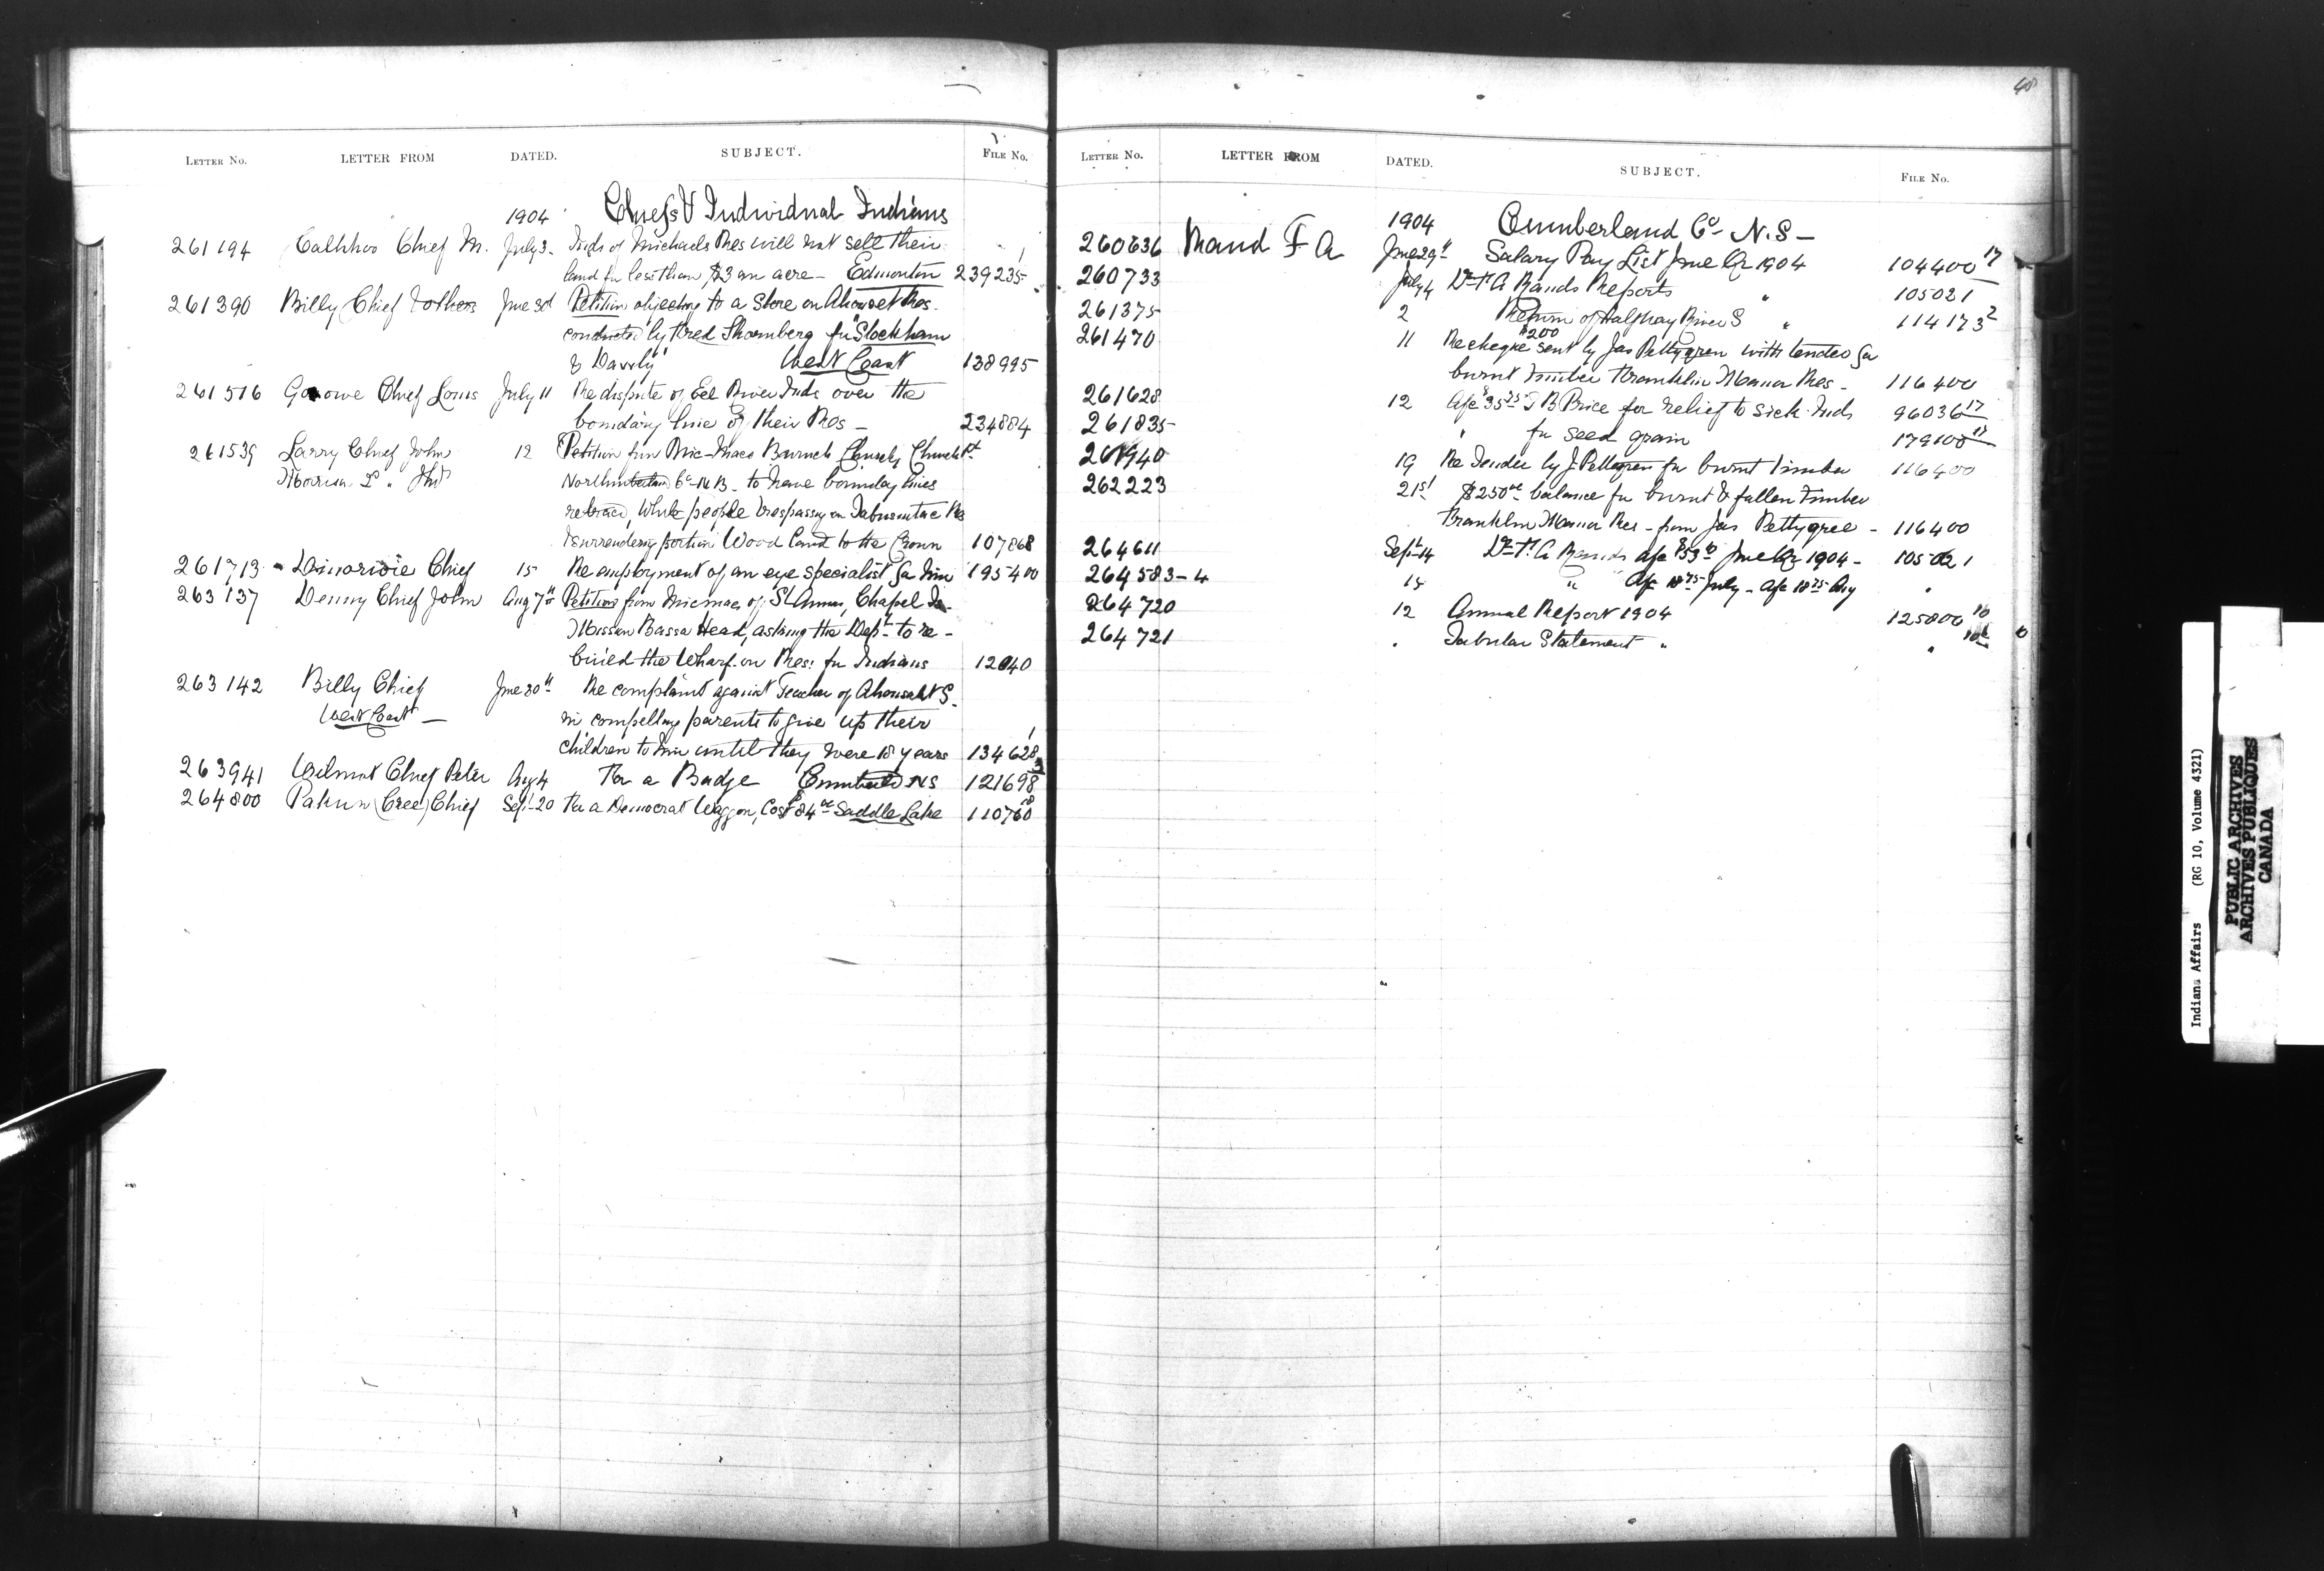 48
LETTER NO. LETTER FROM DATED. SUBJECT. FILE No.
1904 Chiefs & Individual Indians
261194 Calihoo Chief M. July 3. Inds of Michaels Res will not sell their
land for less than $3 an acre - Edmonton 239235 1
261390 Billy Chief & others June 30 Petition objecting to a Store on Ahouset Res.
conducted by Fred Thornberg for "Stockham
& Dawley" West Coast 138995
261516 Chief Louis July 11 Re dispute of Eel River Inds over the
boundary line of their Res - 234884
261539 Larry Chief John 12 Petition from Mic-Macs Burnt Church Church Pt
Morrison 2nd " Northumberland Co N B - to have boundary lines
retraced, White people trespassing on Tabusintac Res
& surrendering portion Wood land to the Crown 107868
261713 Chief 15 Re employment of an eye specialist for him 195400
263137 Denny Chief John Aug 7th Petition from Micmacs of St Annes, Chapel Is.
Mission Bassa Head, asking the Dept to re-
build the Wharf on Res: for Indians 12040
263142 Billy Chief June 30th Re complaint against Teacher of Ahousaht S.
West Coast - in compelling parents to give up their
children to him until they were 18 years 134628 1
263941 Wilmot Chief Peter Aug 4 For a Badge Cumberland NS 121698 3
264800 Pakun (Cree) Chief Sept 20 For a Democrat Waggon, Cost $84.00 Saddle Lake 110760 18
LETTER NO. LETTER FROM DATED. SUBJECT. FILE No.
1904 Cumberland Co N.S -
260636 Rand F A June 29th Salary Pay List June Qr 1904 104400 17
260733 July 4 Dr T. A Rands Reports 105021
261375 2 Return of Halfway River S " 114173 2
261470 11 Re cheque $200 sent by Jas Pettygrew with tender for
burnt timber Franklin Manor Res - 116400
261628 12 a/c $35.75 J B Price for relief to sick Inds 96036 17
261835 " for seed grain 179108 17
261940 19 Re Tender by J. Pettegrew for burnt timber 116400
262223 21st $250.00 balance for burnt & fallen timber
Franklin Manor Res - from Jas Pettygree - 116400
264611 Sept 14 Dr T. A Rands a/c $53 June Qr 1904 - 105021
264583-4 15 " a/c 18.75 July - a/c 18.75 Aug "
264720 12 Annual Report 1904 125800 10
264721 " Tabular Statement " "
Indians Affairs (RG 10, Volume 4321)
PUBLIC ARCHIVES
ARCHIVES PUBLIQUES
CANADA